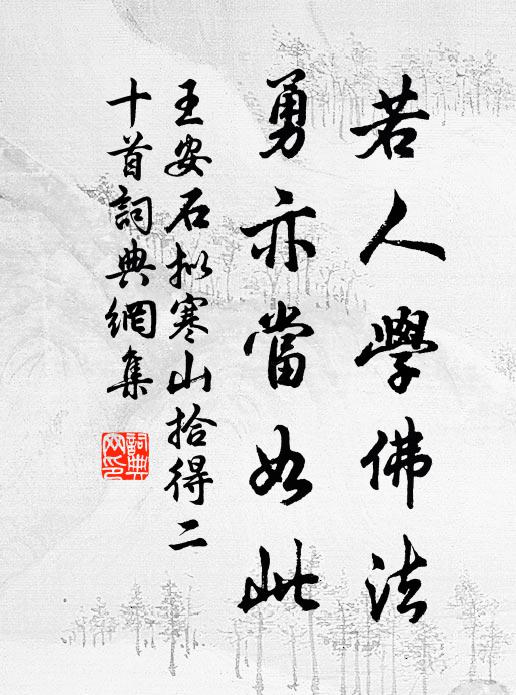 若人學佛法
勇亦當如此
王安石拟寒山拾得二
十首詞典網集
詞典网印